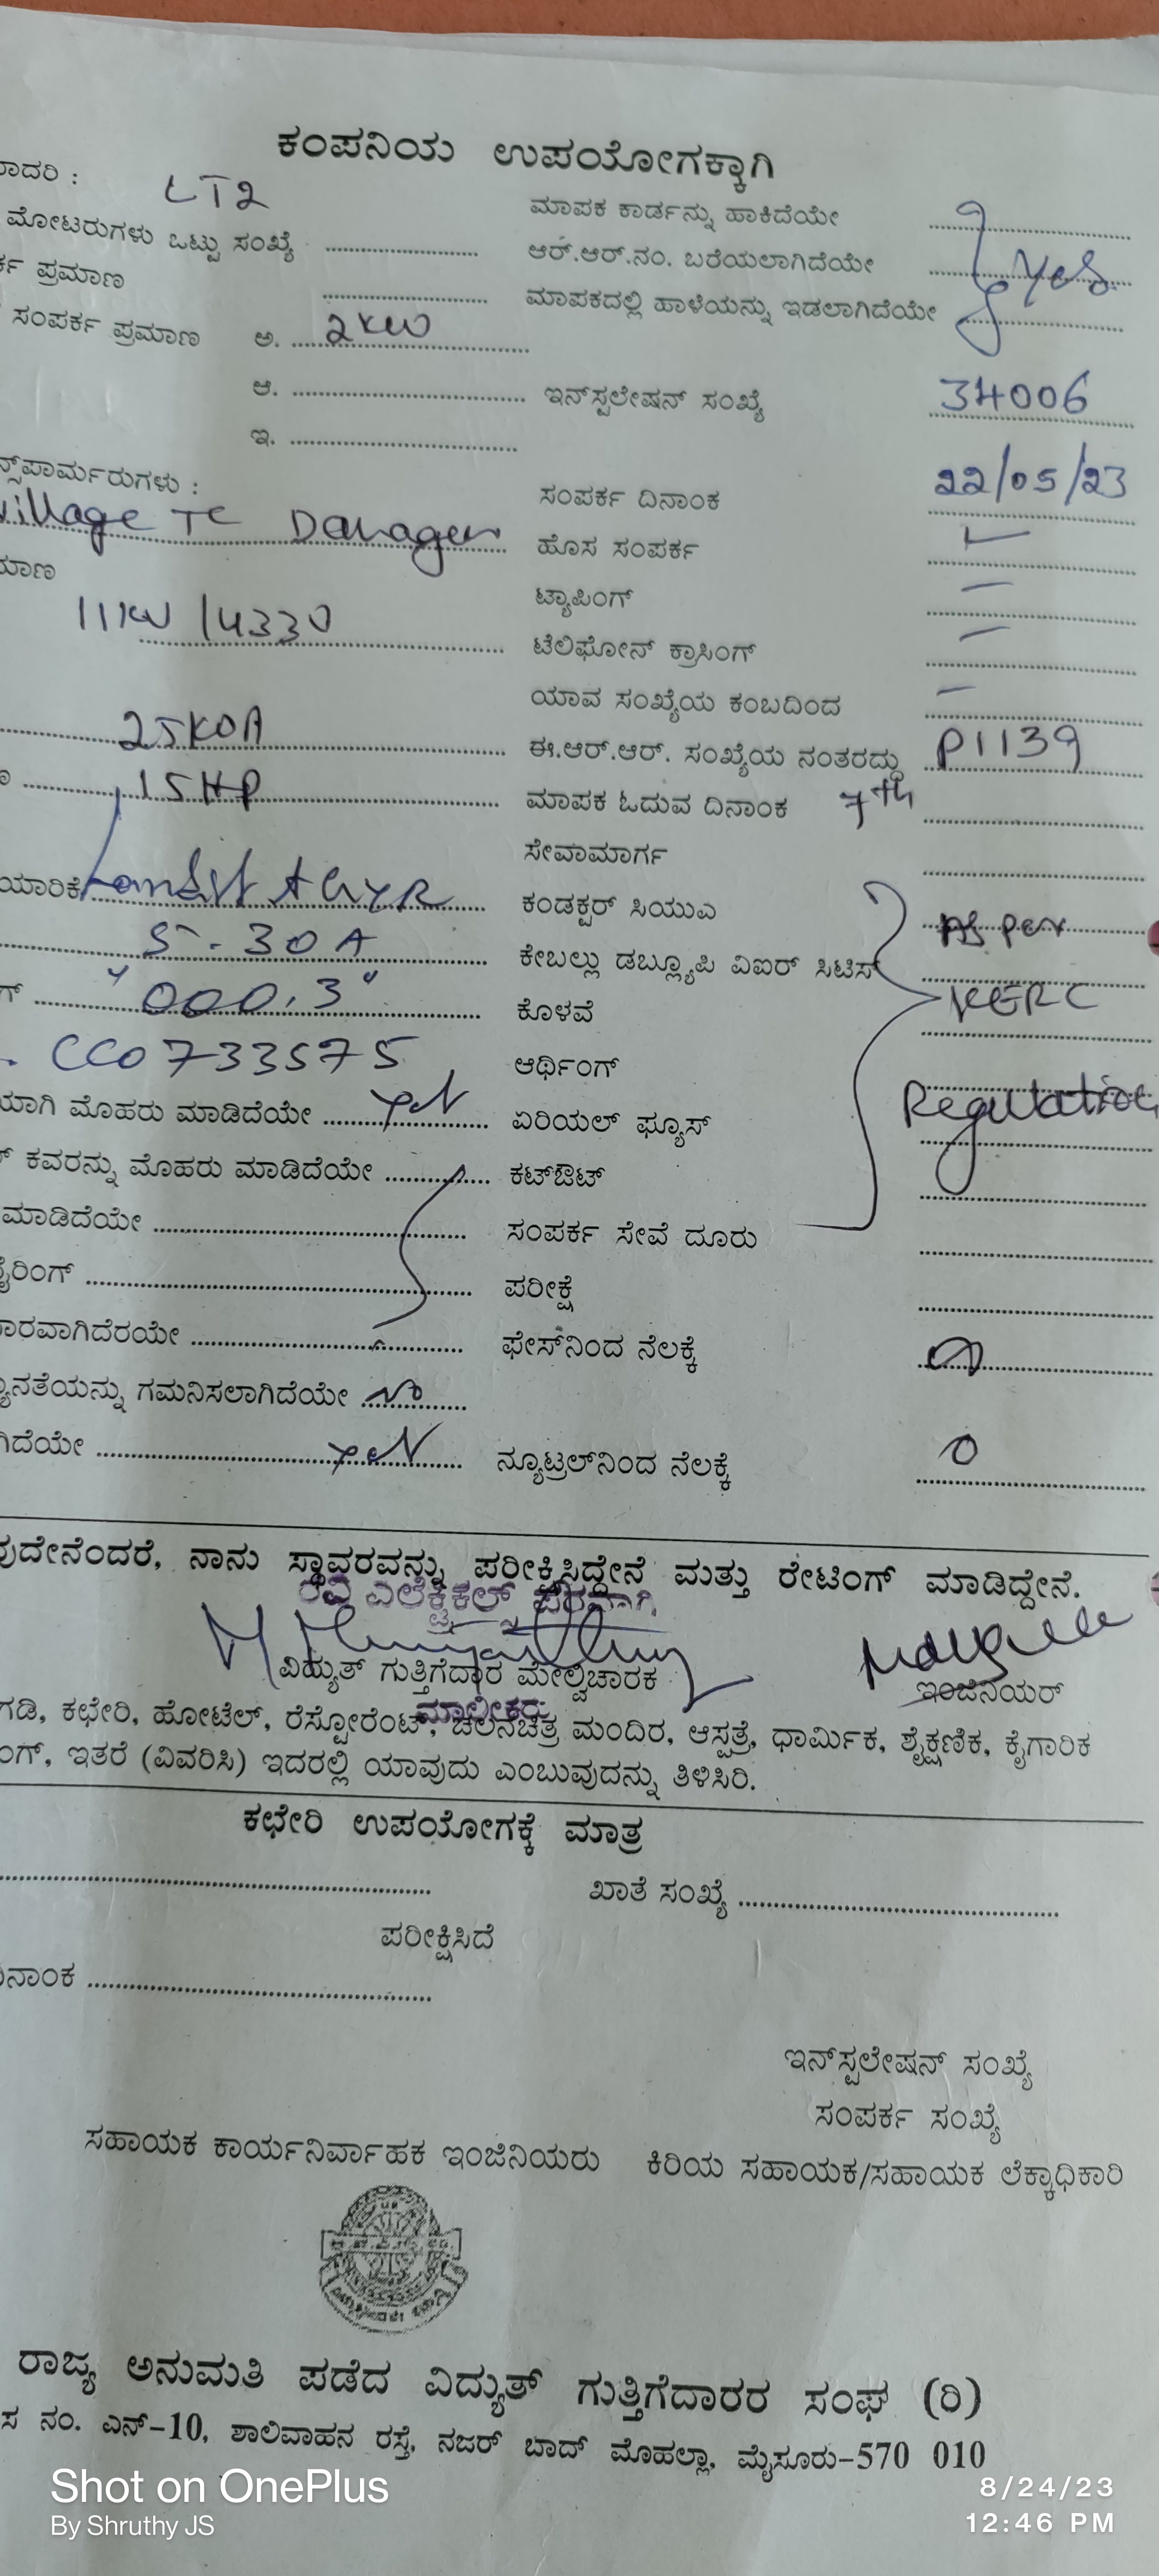 ಕಂಪನಿಯ ಉಪಯೋಗಕ್ಕಾಗಿ
ಾದರಿ : LT2
ಮಾಪಕ ಕಾರ್ಡನ್ನು ಹಾಕಿದೆಯೇ
ಮೋಟರುಗಳು ಒಟ್ಟು ಸಂಖ್ಯೆ
ಆರ್.ಆರ್.ನಂ. ಬರೆಯಲಾಗಿದೆಯೇ yes
ರ್ಕ ಪ್ರಮಾಣ
ಮಾಪಕದಲ್ಲಿ ಹಾಳೆಯನ್ನು ಇಡಲಾಗಿದೆಯೇ
ಸಂಪರ್ಕ ಪ್ರಮಾಣ ಅ. 2KW
ಆ. ಇನ್‌ಸ್ಟಲೇಷನ್ ಸಂಖ್ಯೆ 34006
ಇ.
ನ್ಸ್‌ಫಾರ್ಮರುಗಳು : ಸಂಪರ್ಕ ದಿನಾಂಕ 22/05/23
village TC ಹೊಸ ಸಂಪರ್ಕ
ಮಾಣ ಟ್ಯಾಪಿಂಗ್ –
11KV /4330 ಟೆಲಿಫೋನ್ ಕ್ರಾಸಿಂಗ್ –
ಯಾವ ಸಂಖ್ಯೆಯ ಕಂಬದಿಂದ –
25KVA ಈ.ಆರ್.ಆರ್. ಸಂಖ್ಯೆಯ ನಂತರದ್ದು P1139
15HP ಮಾಪಕ ಓದುವ ದಿನಾಂಕ 7th
ಸೇವಾಮಾರ್ಗ
ಯಾರಿಕೆ ಕಂಡಕ್ಟರ್ ಸಿಯುಎ As per
5-30A ಕೇಬಲ್ಲು ಡಬ್ಲ್ಯೂಪಿ ವಿಐರ್ ಸಿಟಿಸ್
ಗ್ "000.3" ಕೊಳವೆ KERC
CC0733575 ಆರ್ಥಿಂಗ್
ಯಾಗಿ ಮೊಹರು ಮಾಡಿದೆಯೇ yes ಏರಿಯಲ್ ಫ್ಯೂಸ್ Regulation
ಕವರನ್ನು ಮೊಹರು ಮಾಡಿದೆಯೇ ಕಟ್‌ಔಟ್
ಮಾಡಿದೆಯೇ ಸಂಪರ್ಕ ಸೇವೆ ದೂರು
ೈರಿಂಗ್ ಪರೀಕ್ಷೆ
ಾರವಾಗಿದೆರಯೇ ಫೇಸ್‌ನಿಂದ ನೆಲಕ್ಕೆ
ಯೂನತೆಯನ್ನು ಗಮನಿಸಲಾಗಿದೆಯೇ no
ಗಿದೆಯೇ yes ನ್ಯೂಟ್ರಲ್‌ನಿಂದ ನೆಲಕ್ಕೆ 0
ವುದೇನೆಂದರೆ, ನಾನು ಸ್ಥಾವರವನ್ನು ಪರೀಕ್ಷಿಸಿದ್ದೇನೆ ಮತ್ತು ರೇಟಿಂಗ್ ಮಾಡಿದ್ದೇನೆ.
ರವಿ ಎಲೆಕ್ಟ್ರಿಕಲ್ಸ್ ಪರವಾಗಿ
ವಿದ್ಯುತ್ ಗುತ್ತಿಗೆದಾರ ಮೇಲ್ವಿಚಾರಕ ಇಂಜಿನಿಯರ್
ಮಾಲೀಕರು
ಗಡಿ, ಕಛೇರಿ, ಹೋಟೆಲ್, ರೆಸ್ಟೋರೆಂಟ್, ಚಲನಚಿತ್ರ ಮಂದಿರ, ಆಸ್ಪತ್ರೆ, ಧಾರ್ಮಿಕ, ಶೈಕ್ಷಣಿಕ, ಕೈಗಾರಿಕ
ಂಗ್, ಇತರೆ (ವಿವರಿಸಿ) ಇದರಲ್ಲಿ ಯಾವುದು ಎಂಬುವುದನ್ನು ತಿಳಿಸಿರಿ.
ಕಛೇರಿ ಉಪಯೋಗಕ್ಕೆ ಮಾತ್ರ
ಖಾತೆ ಸಂಖ್ಯೆ
ಪರೀಕ್ಷಿಸಿದೆ
ದಿನಾಂಕ
ಇನ್‌ಸ್ಟಲೇಷನ್ ಸಂಖ್ಯೆ
ಸಂಪರ್ಕ ಸಂಖ್ಯೆ
ಸಹಾಯಕ ಕಾರ್ಯನಿರ್ವಾಹಕ ಇಂಜಿನಿಯರು ಕಿರಿಯ ಸಹಾಯಕ/ಸಹಾಯಕ ಲೆಕ್ಕಾಧಿಕಾರಿ
ರಾಜ್ಯ ಅನುಮತಿ ಪಡೆದ ವಿದ್ಯುತ್ ಗುತ್ತಿಗೆದಾರರ ಸಂಘ (ರಿ)
ಸ ನಂ. ಎನ್-10, ಶಾಲಿವಾಹನ ರಸ್ತೆ, ನಜರ್ ಬಾದ್ ಮೊಹಲ್ಲಾ, ಮೈಸೂರು-570 010
Shot on OnePlus
By Shruthy JS
8/24/23
12:46 PM